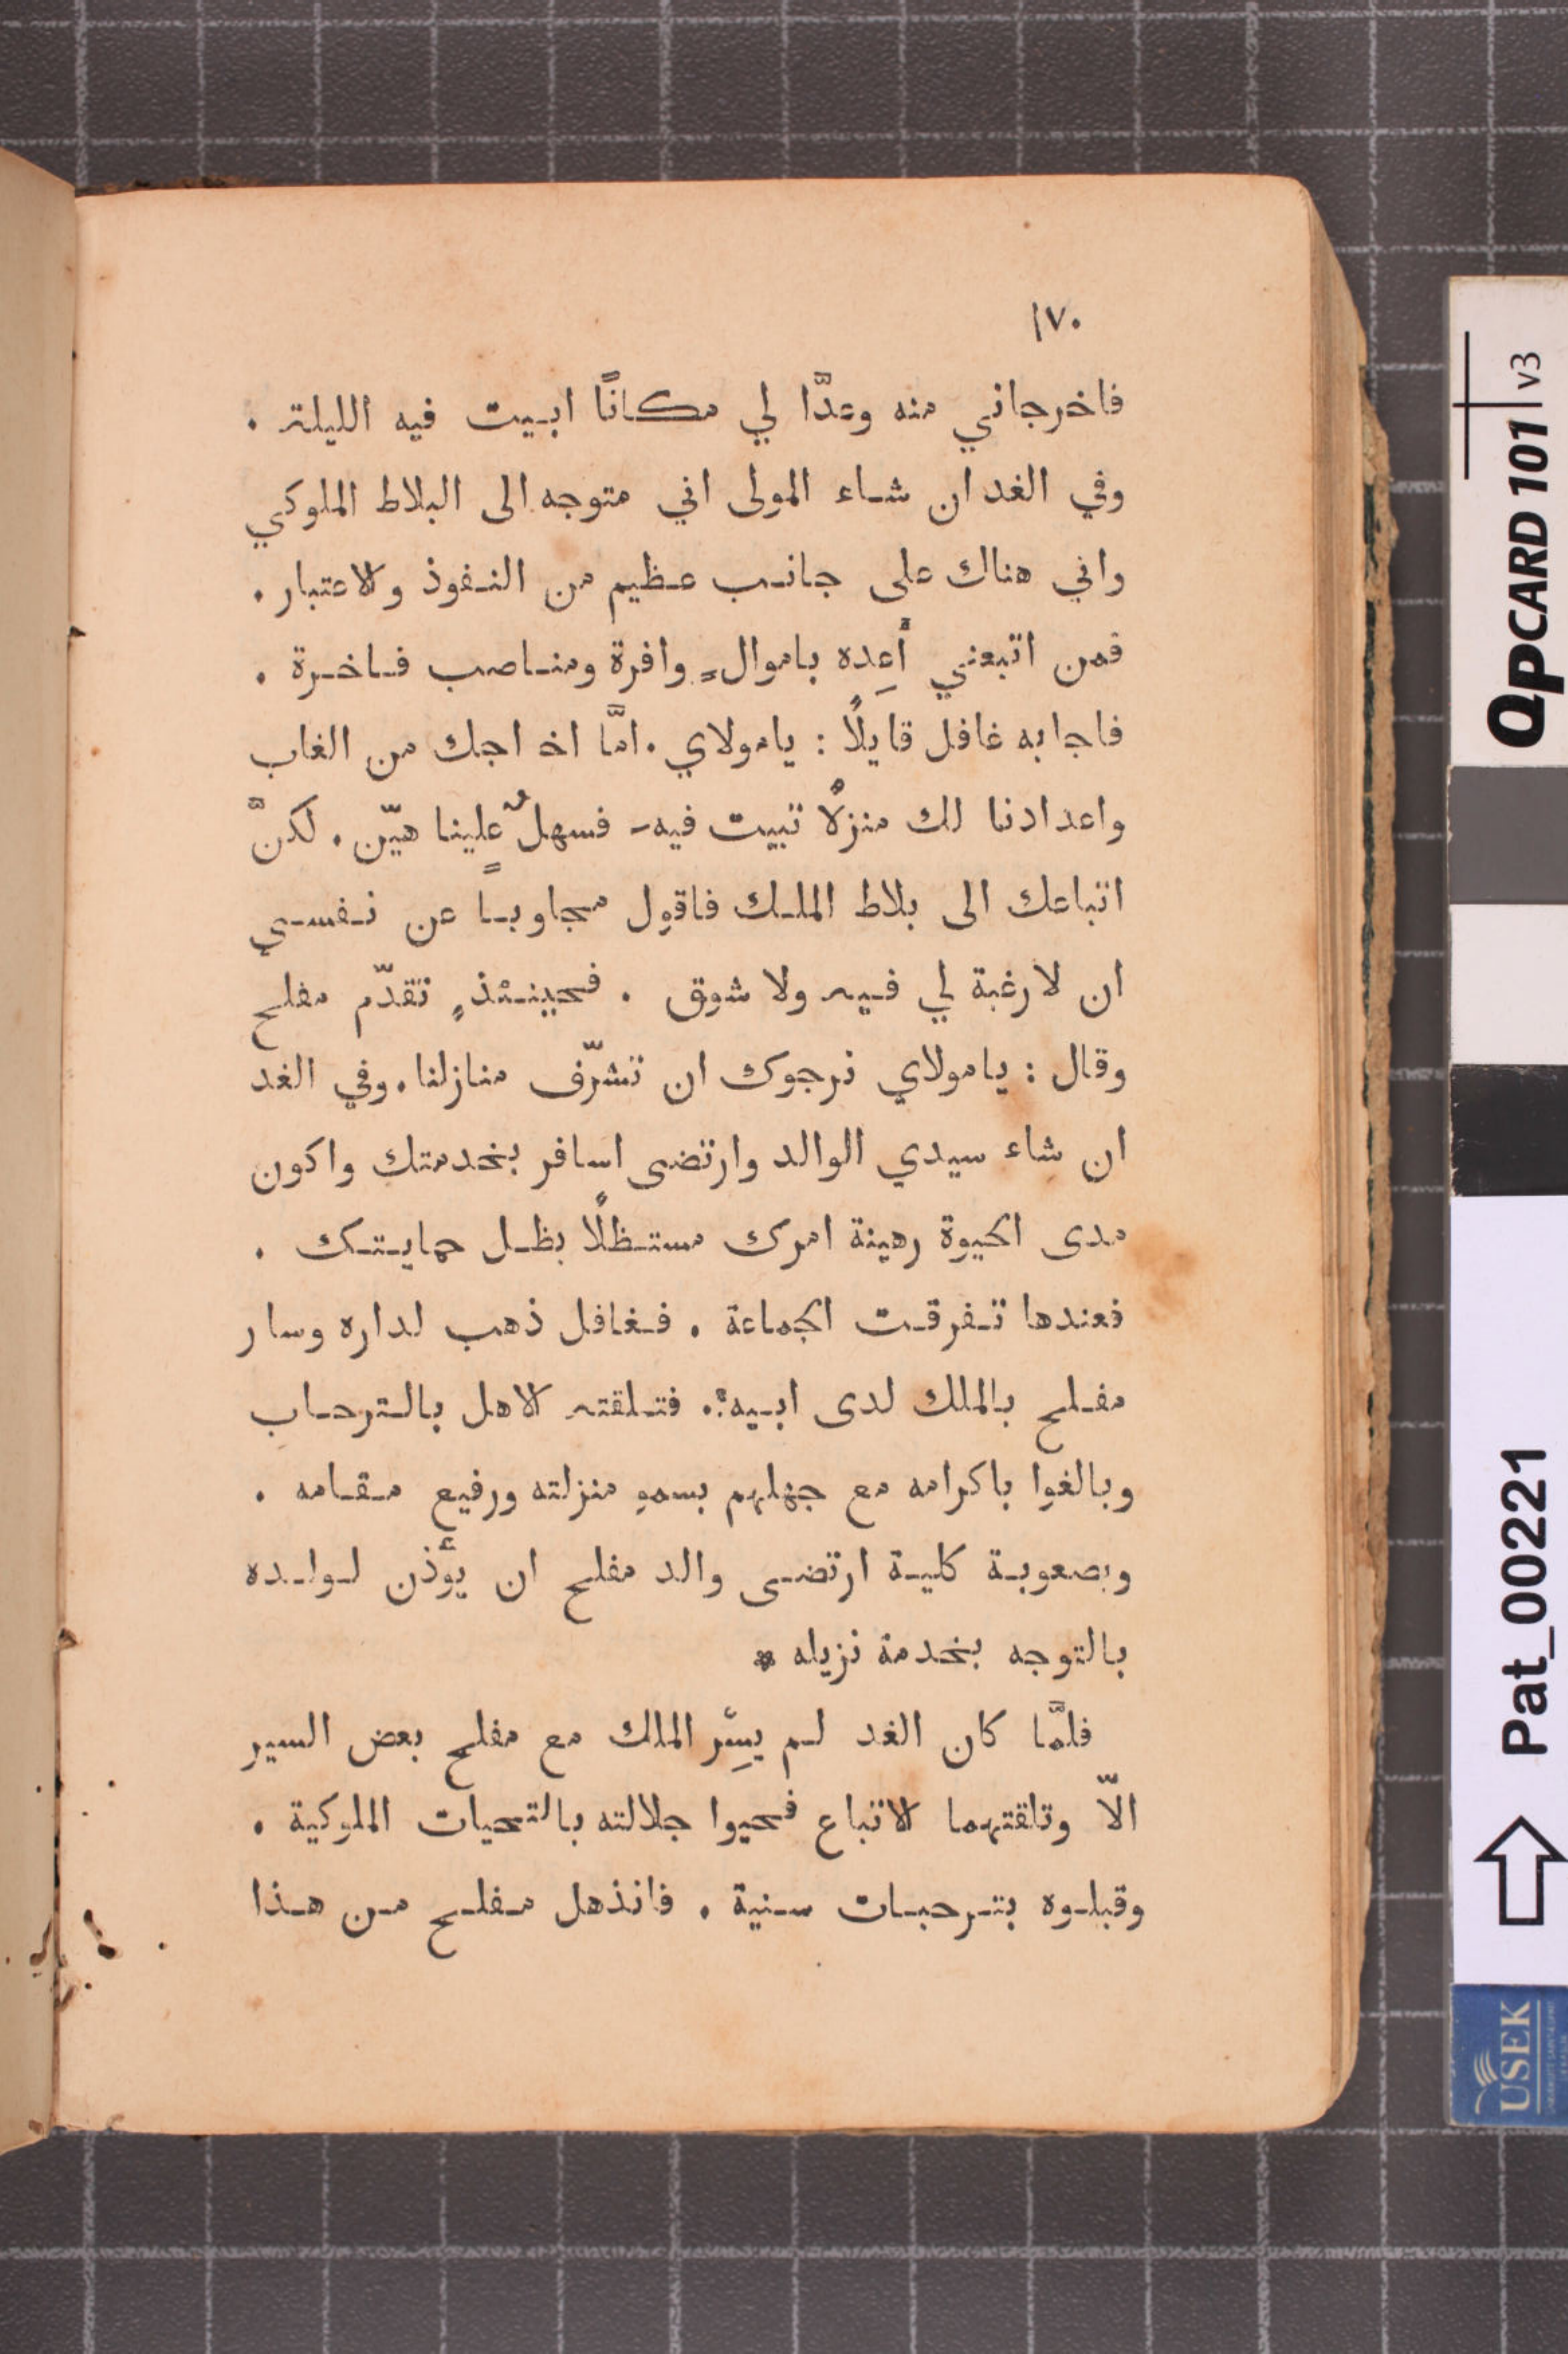 ١٧٠
فاخرجاني منه وعدَّا لي مكانًا ابيت فيه الليلة .
وفي الغد ان شاء المولى اني متوجه الى البلاط الملوكي
واني هناك على جانب عظيم من النفوذ والاعتبار .
فمن اتبعني أَعِده باموالٍ وافرة ومناصب فاخرة .
فاجابه غافل قايلًا : يامولاي . امَّا اخ اجك من الغاب
واعدادنا لك منزلًا تبيت فيه - فسهلٌ علينا هيّن . لكنَّ
اتباعك الى بلاط الملك فاقول مجاوبًا عن نفسي
ان لا رغبة لي فيه ولا شوق . فحينئذٍ تقدّم مفلح
وقال : يامولاي نرجوك ان تشرّف منازلنا . وفي الغد
ان شاء سيدي الوالد وارتضى اسافر بخدمتك واكون
مدى الحيوة رهينة امرك مستظلًا بظل حمايتك .
فعندها تفرقت الجماعة . فغافل ذهب لداره وسار
مفلح بالملك لدى ابيه . فتلقته الاهل بالترحاب
وبالغوا باكرامه مع جهلهم بسمو منزلته ورفيع مقامه .
وبصعوبة كلية ارتضى والد مفلح ان يأذن لولده
بالتوجه بخدمة نزيله *
فلمَّا كان الغد لم يسِرْ الملك مع مفلح بعض السير
الّا وتلقتهما الاتباع فحيوا جلالته بالتحيات الملوكية .
وقبلوه بترحبات سنية . فانذهل مفلح من هذا
QPCARD 101 v3
Pat_00221
USEK